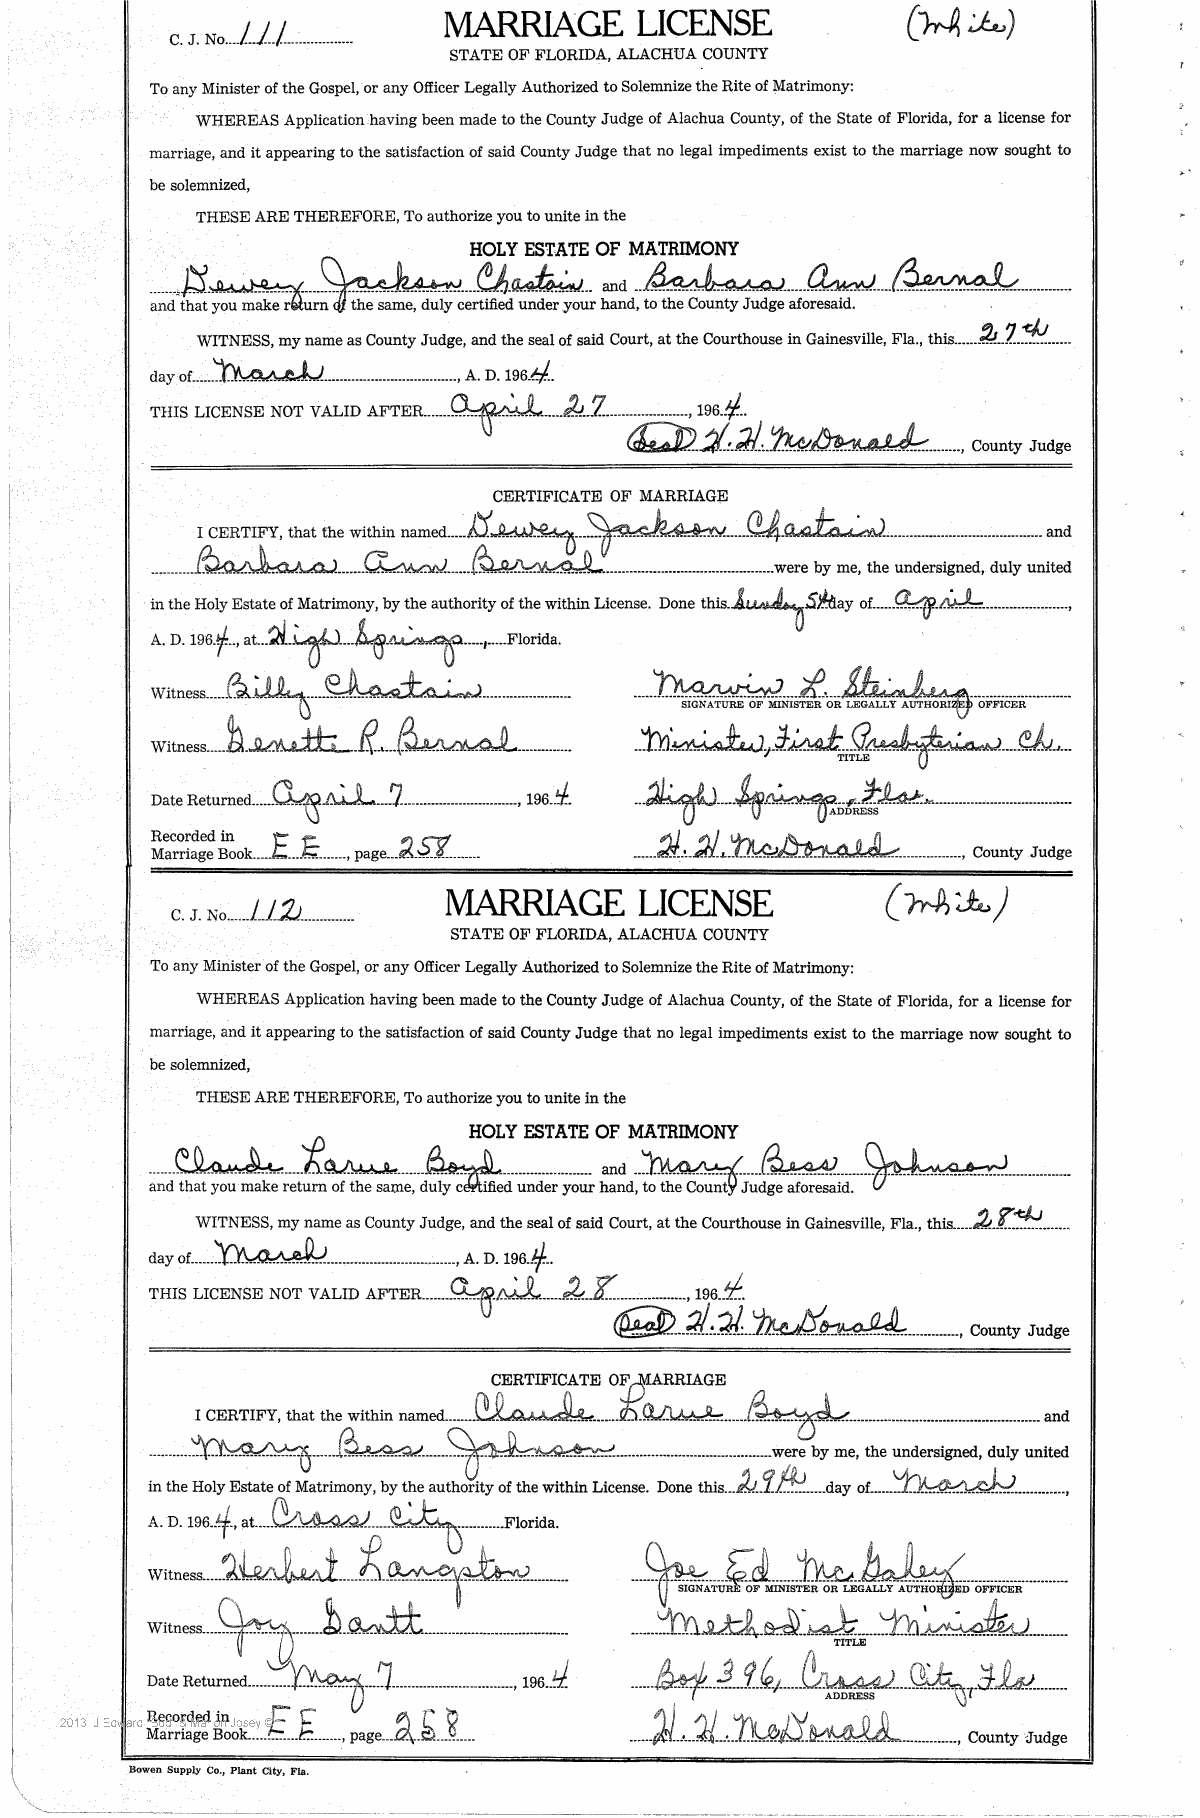 C. J. No. 111 MARRIAGE LICENSE (White)
STATE OF FLORIDA, ALACHUA COUNTY
To any Minister of the Gospel, or any Officer Legally Authorized to Solemnize the Rite of Matrimony:
WHEREAS Application having been made to the County Judge of Alachua County, of the State of Florida, for a license for
marriage, and it appearing to the satisfaction of said County Judge that no legal impediments exist to the marriage now sought to
be solemnized,
THESE ARE THEREFORE, To authorize you to unite in the
HOLY ESTATE OF MATRIMONY
Dewey Jackson Chastain and Barbara Ann Bernal
and that you make return of the same, duly certified under your hand, to the County Judge aforesaid.
WITNESS, my name as County Judge, and the seal of said Court, at the Courthouse in Gainesville, Fla., this 27th
day of March, A. D. 1964.
THIS LICENSE NOT VALID AFTER April 27, 1964.
(Seal) H. H. McDonald, County Judge
CERTIFICATE OF MARRIAGE
I CERTIFY, that the within named Dewey Jackson Chastain and
Barbara Ann Bernal were by me, the undersigned, duly united
in the Holy Estate of Matrimony, by the authority of the within License. Done this Sunday 5th day of April,
A. D. 1964, at High Springs, Florida.
Witness Billy Chastain Marvin L. Steinberg
SIGNATURE OF MINISTER OR LEGALLY AUTHORIZED OFFICER
Witness Genette R. Bernal Minister, First Presbyterian Ch.
TITLE
Date Returned April 7, 1964 High Springs, Fla.
ADDRESS
Recorded in
Marriage Book E E, page 258 H. H. McDonald, County Judge
C. J. No. 112 MARRIAGE LICENSE (White)
STATE OF FLORIDA, ALACHUA COUNTY
To any Minister of the Gospel, or any Officer Legally Authorized to Solemnize the Rite of Matrimony:
WHEREAS Application having been made to the County Judge of Alachua County, of the State of Florida, for a license for
marriage, and it appearing to the satisfaction of said County Judge that no legal impediments exist to the marriage now sought to
be solemnized,
THESE ARE THEREFORE, To authorize you to unite in the
HOLY ESTATE OF MATRIMONY
Claude Larue Boyd and Mary Bess Johnson
and that you make return of the same, duly certified under your hand, to the County Judge aforesaid.
WITNESS, my name as County Judge, and the seal of said Court, at the Courthouse in Gainesville, Fla., this 28th
day of March, A. D. 1964.
THIS LICENSE NOT VALID AFTER April 28, 1964.
(Seal) H. H. McDonald, County Judge
CERTIFICATE OF MARRIAGE
I CERTIFY, that the within named Claude Larue Boyd and
Mary Bess Johnson were by me, the undersigned, duly united
in the Holy Estate of Matrimony, by the authority of the within License. Done this 29th day of March,
A. D. 1964, at Cross City Florida.
Witness Herbert Langston Joe Ed McGahey
SIGNATURE OF MINISTER OR LEGALLY AUTHORIZED OFFICER
Witness Joy Gantt Methodist Minister
TITLE
Date Returned May 7, 1964 Box 396, Cross City, Fla
ADDRESS
Recorded in
Marriage Book E E, page 258 H. H. McDonald, County Judge
Bowen Supply Co., Plant City, Fla.